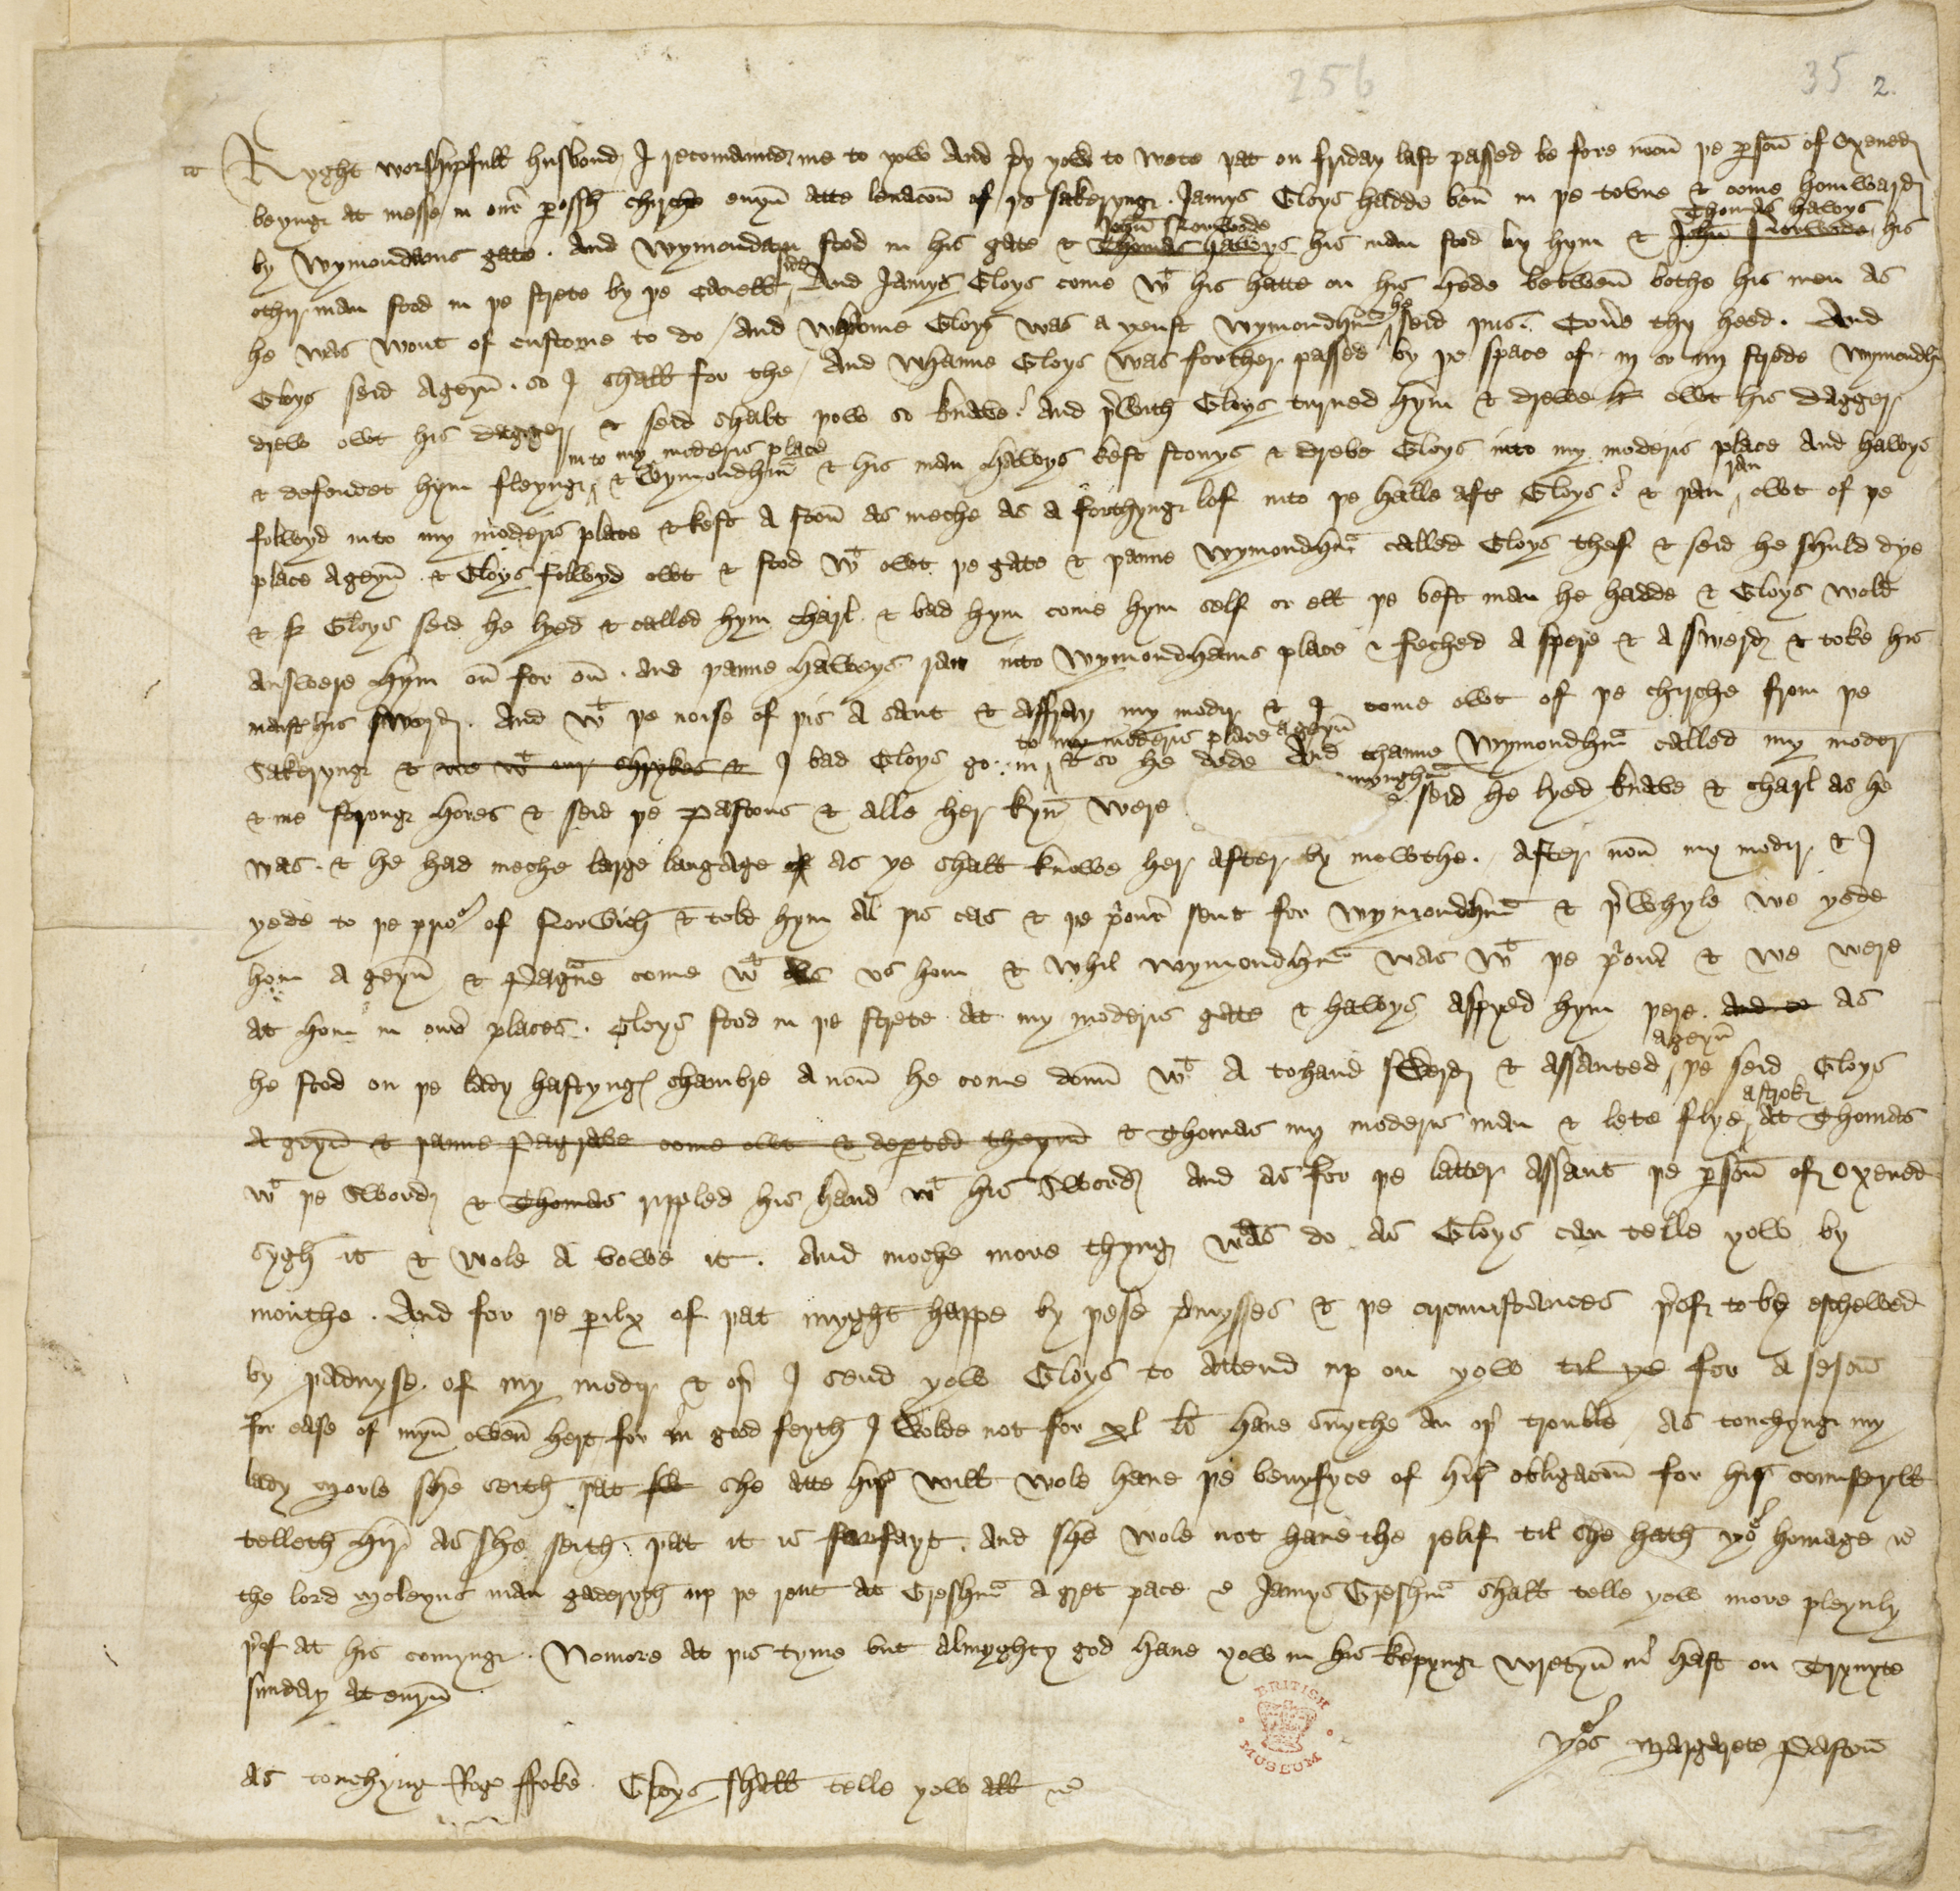 256
35 2
Ryght worshipfull husbond I recomaunde me to yow And pray yow to wete þat on friday last passed be fore noon þe parson of Oxened
beyng at messe in oure parossh chirche euyn atte leuacion of þe sakeryng Jamys Gloys hadde ben in þe towne & come homward
John Norwode Thomas Hawys
by Wymondams gate . And Wymondam stod in his gate & Thomas Hawys his man stod by hym & John Norwode his
side
othir man stod in þe strete by þe canell And Jamys Gloys come wt his hatte on his hede betwen bothe his men as
he
he was wont of custome to do / And whanne Gloys was a yenst Wymondham seid þus Couere thy heed . And
Gloys seid ageyn so I shall for the / And whanne Gloys was forther passed by þe space of iij or iiij strede Wymondham
drew owt his dagger & seid shalt þow so knave And þerwith Gloys turned hym & drewe h owt his dagger
in to my moderis place
& defendet hym fleyng & Wymondham & his man Hawys kest stonys & dreve Gloys into my moderis place And Hawys
ran
folwyd into my moderis place & kest a ston as meche as a forthyng lof into þe halle after Gloys & þan owt of þe
place ageyn & Gloys folwyd owt & stod wt owt þe gate & þanne Wymondham called Gloys thef & seid he schuld dye
& h Gloys seid he lyed & called hym charl & bad hym come hym self or ell þe best man he hadde & Gloys wold
answere hym on for on . And þanne Haweys ran into Wymondhams place & feched a spere & a swerd & toke his
maister his swerd . And wt þe noise of þis a saut & affray my modir & I come owt of þe chirche from þe
to my moderis place ageyn
Sakeryng & we wt our shrykes & I bad Gloys go in & so he dede And thanne Wymondham called my moder
myngham
& me strong hores & seid þe Pastons & alle her kyn were & seid he lyed knave & charl as he
was . & he had meche large langage of as ye shall knowe her after by mowthe . After non my modir & I
yede to þe priour of Norwich & told hym al þis cas & þe priour sent for Wymondham & þerwhyle we yede
hom a geyn & Pagraue come wt us hom & whil Wymondham was wt þe priour & we were
at hom in owre places . Gloys stod in þe strete at my moderis gate & Hawys aspyed hym þere and as
ageyn
he stod on þe lady Hastyngs chambre a non he come doun wt a tohand swerd & assauted þe seid Gloys
a strok
Ageyn & þanne Pagrave come owt & departed theym & Thomas my moderis man & lete flye at Thomas
wt þe swerd & Thomas rippled his hand wt his swerd And as for þe latter assaut þe parson of Oxened
sygh it & wole a vowe it . And moche more thyng was do as Gloys can telle yow by
mouthe . And for þe perilx of þat myght happe by þese premysses & þe circumstances þerof to be eschewed
by þadvyse of my modir & oþer I send yow Gloys to attend up on yow til ye for a seson
for ease of myn owen hert for in good feyth I wolde not for xl li haue suyche an oþer trouble / As touchyng my
lady Morle she seith þat she she atte hire will wole haue þe benyfyce of hire obligacion for hire counseyll
telleth hire as she seith þat it is forfayt . And she wole not haue the relif til she hath your homage &c
the lord Moleyns man gaderyth up þe rent at Gresham a gret pace & Jamys Gresham shall telle yow more pleynly
þerof at his comyng . Nomore at þis tyme but almyghty god haue yow in his kepyng wretyn in hast on Trynyte
sunday at euyn
Yours Margarete Paston
As touchyng Roger ffoke Gloys shall telle yow all &c
BRITISH MUSEUM